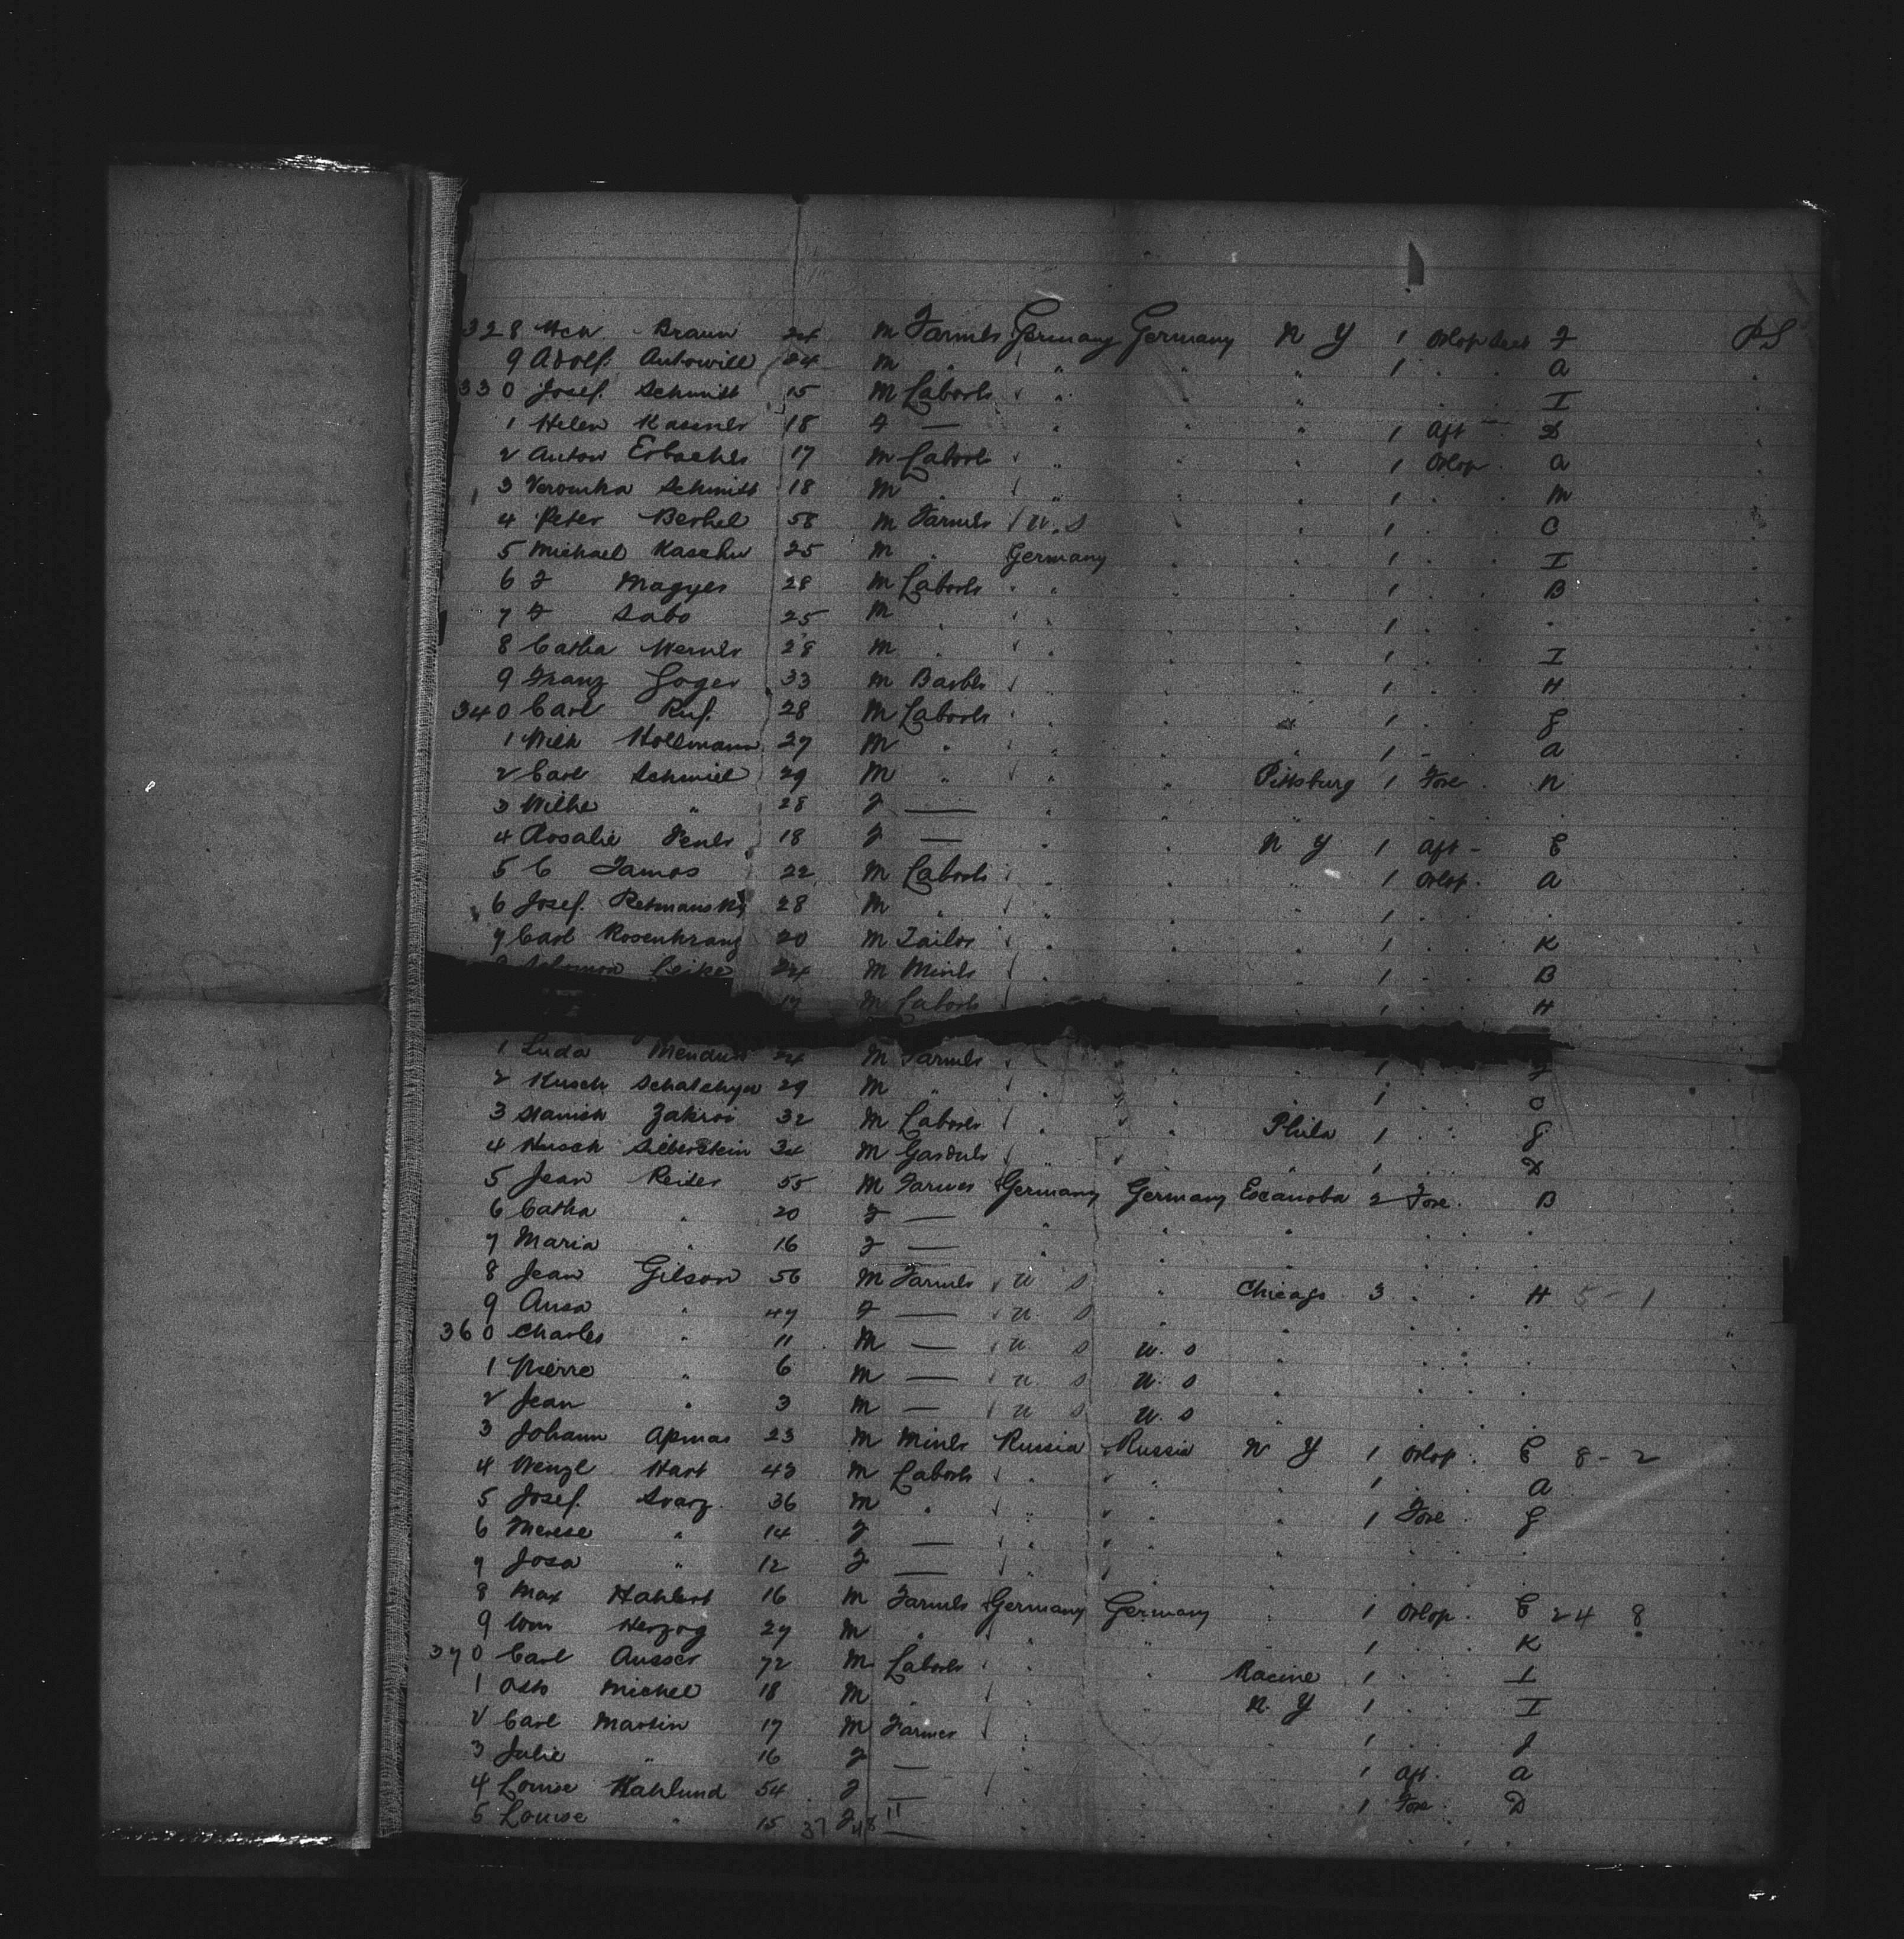 328 Hch Braun 24 M Farmer Germany Germany N Y 1 Orlop Deck F PS
9 Adolf Antowill 24 M " " " " 1 " A
330 Josef Schmitt 15 M Laborer " " " I
1 Helen Kassner 18 F — " " " 1 Aft D
2 Anton Erbacher 17 M Laborer " " " 1 Orlop A
3 Veronika Schmitt 18 M " " " " 1 M
4 Peter Berhel 58 M Farmer U.S " " 1 C
5 Michael Kaschu 25 M " Germany " " 1 I
6 F Magyer 28 M Laborer " " " 1 B
7 F Sabo 25 M " " " " 1 "
8 Catha Werner 28 M " " " " 1 I
9 Franz Goger 33 M Barber " " " 1 H
340 Carl Ruf 28 M Laborer " " " 1 G
1 Wilh Hollmann 27 M " " " " 1 A
2 Carl Schmiel 29 M " " " Pittsburg 1 Fore N
3 Wilhe " 28 F — " " "
4 Rosalie 18 F — " " N Y 1 Aft E
5 C Tamos 22 M Laborer " " " 1 Orlop A
6 Josef Retmansky 28 M " " " " 1 "
7 Carl Rosenkranz 20 M Tailor " " " 1 K
Leike 24 M Miner " " " 1 B
17 M Laborer " " 1 H
1 Luda 24 M Farmer " " " 1
2 Husch Schatchyn 29 M " " " " 1 O
3 Stanish Zakroi 32 M Laborer " " Phila 1 G
4 Husch Silberstein 34 M Gardner " " " 1 D
5 Jean Reiter 55 M Farmer Germany Germany Escanoba 2 Fore B
6 Catha " 20 F — " " "
7 Maria " 16 F — " " "
8 Jean Gilson 56 M Farmer U S " Chicago 3 " H 5 - 1
9 Anna " 47 F — U S " "
360 Charles " 11 M — U S U. S "
1 Pierre " 6 M — U S U. S "
2 Jean " 3 M — U S U. S "
3 Johann Apmas 23 M Miner Russia Russia N Y 1 Orlop E 8 - 2
4 Wenzl Hart 43 M Laborer " " " 1 A
5 Josef Svarz 36 M " " " " 1 Fore G
6 Therese " 14 F — " " "
7 Josa " 12 F — " " "
8 Max Hahlert 16 M Farmer Germany Germany " 1 Orlop E 24 8
9 Wm Herzog 27 M " " " " 1 K
370 Carl Ausser 72 M Laborer " " Racine 1 I
1 Otto Michel 18 M " " " N. Y 1 I
2 Carl Martin 17 M Farmer " " " 1 J
3 Julie " 16 F — " " " 1 Aft A
4 Louise Kahlund 54 F — " " " 1 Fore D
5 Louise " 15 F — " " "
37 48 11